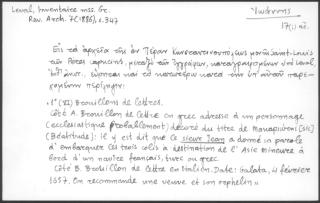 Laval, Inventaire mss. Gr.
Rev. Arch. 7 (1886), σ. 347
17(;) αἰ.
Εἰς τὰ ἀρχεῖα τῆς ἐν Πέραν Κωνσταντινουπόλεως μονῆς Saint-Louis
τῶν Πατέρων capucins, μεταξὺ τῶν ἐγγράφων, καταγραφομένων ὑπὸ Laval,
εὕρηται καὶ τὸ κατωτέρω κατὰ τὴν ὑπ' αὐτοῦ παρε-
χομένην περίληψιν:
«1° (VI) Brouillons de lettres.
Côté A. Brouillon de lettre en grec adressée à un personnage
(ecclésiastique probablement) décoré du titre de Μακαριότης [sic]
(Béatitude): il y est dit que le sieur Jean a donné sa parole
d'embarquer les trois colis à destination de l'Asie Mineure à
bord d'un navire français, turc ou grec.
Côté B. Brouillon de lettre en italien. Date: Galata, 4 février
1657. On recommande une veuve et son orphelin»